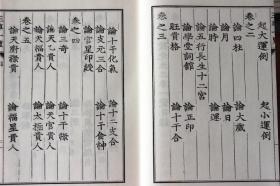 起大運例　起小運例
卷之二
論四柱　論大歲
論月　論日
論時　論運
論五行長生十二宮
論學堂詞館　論正印
旺貴格　論十干合
論十干化氣　論十二支合
論支元三合
論官星印綬　論十干食神
卷之四
論三奇　論十干祿
論天乙貴人　論天官貴人
論天福貴人　論太極貴人
卷之五
論天廚祿貴　論福星貴人